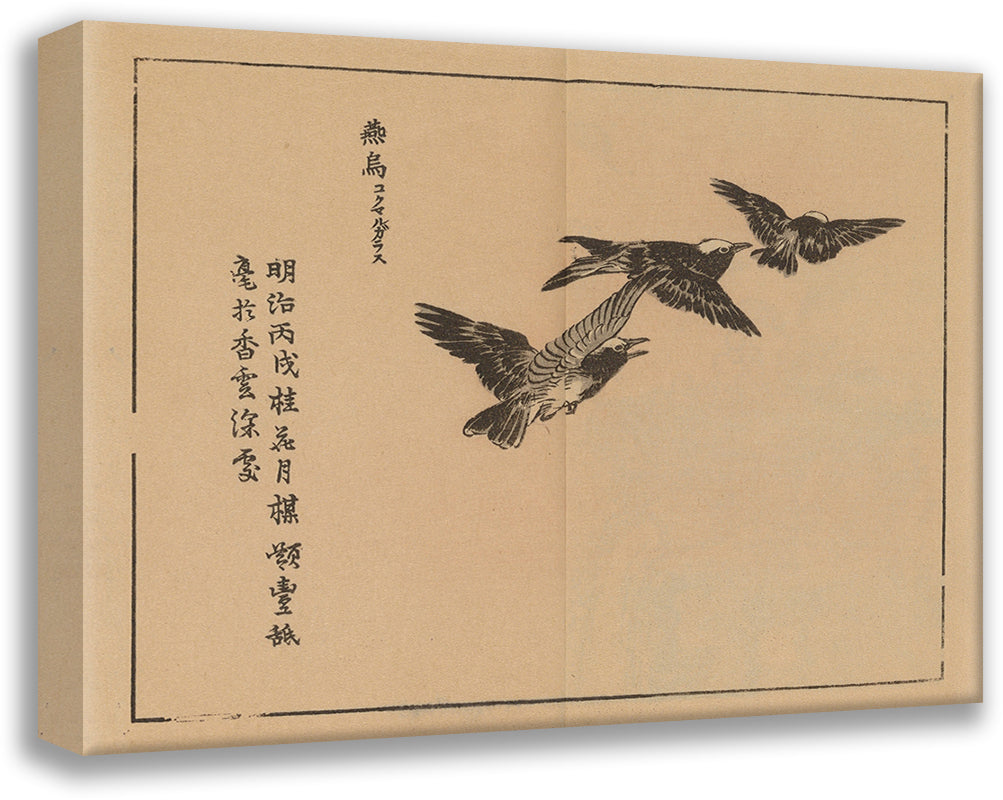 燕烏コクマルガラス
明治丙戌桂花月楳嶺舐
毫於香雲深處